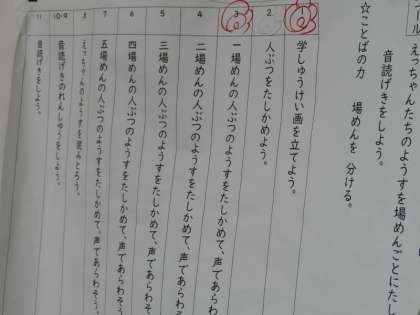 えっちゃんたちのようすを場めんごとにたし
音読げきをしよう。
☆ことばの力 場めんを分ける。
1 学しゅうけい画を立てよう。
2 人ぶつをたしかめよう。
3 一場めんの人ぶつのようすをたしかめて、声であらわそ
4 二場めんの人ぶつのようすをたしかめて、声であらわそ
5 三場めんの人ぶつのようすをたしかめて、声であらわそ
6 四場めんの人ぶつのようすをたしかめて、声であらわそ
7 五場めんの人ぶつのようすをたしかめて、声であらわそう。
8 えっちゃんのようすを読みとろう。
10・9 音読げきのれんしゅうをしよう。
11 音読げきをしよう。